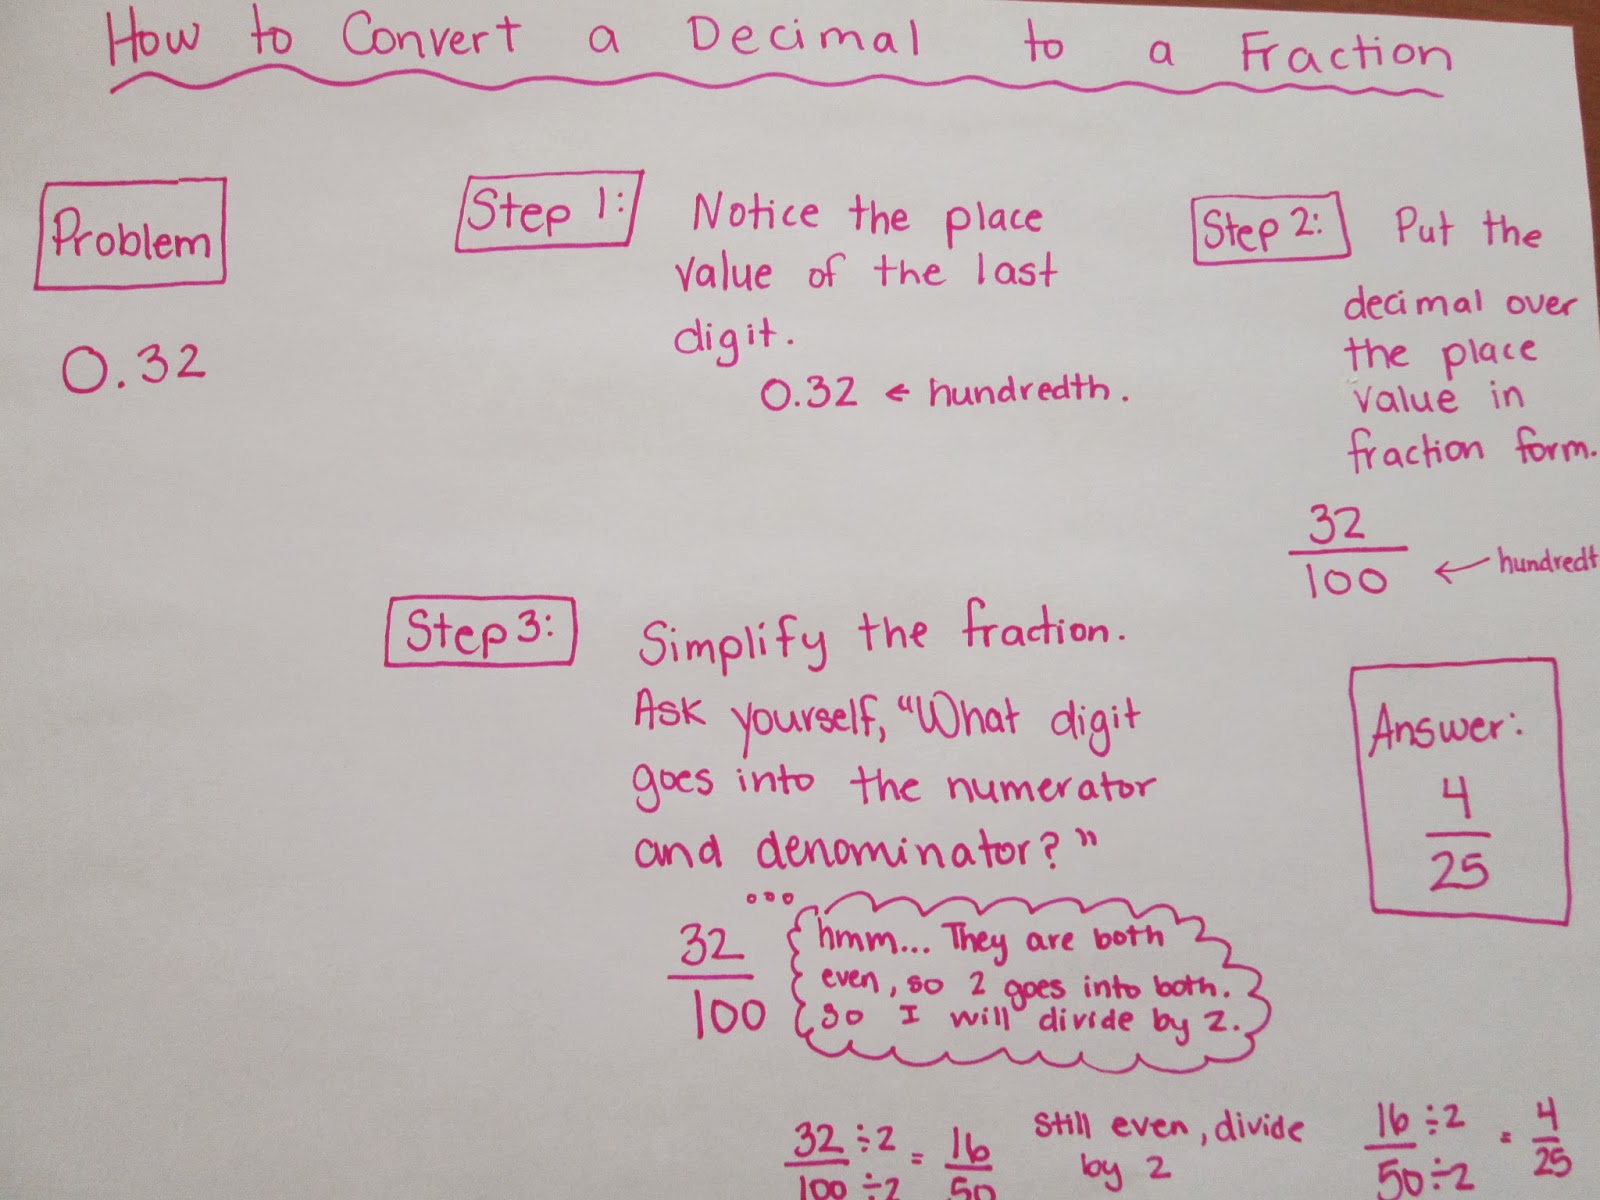 How to Convert a Decimal to a Fraction
Problem
0.32
Step 1:
Notice the place
value of the last
digit.
0.32 ← hundredth.
Step 2:
Put the
decimal over
the place
value in
fraction form.
32
100 ← hundredt
Step 3:
Simplify the fraction.
Ask yourself, "What digit
goes into the numerator
and denominator?"
32
100
hmm... They are both
even, so 2 goes into both.
So I will divide by 2.
32 ÷2 = 16
100 ÷2 50
Still even, divide
by 2
16 ÷2 = 4
50 ÷2 25
Answer:
4
25